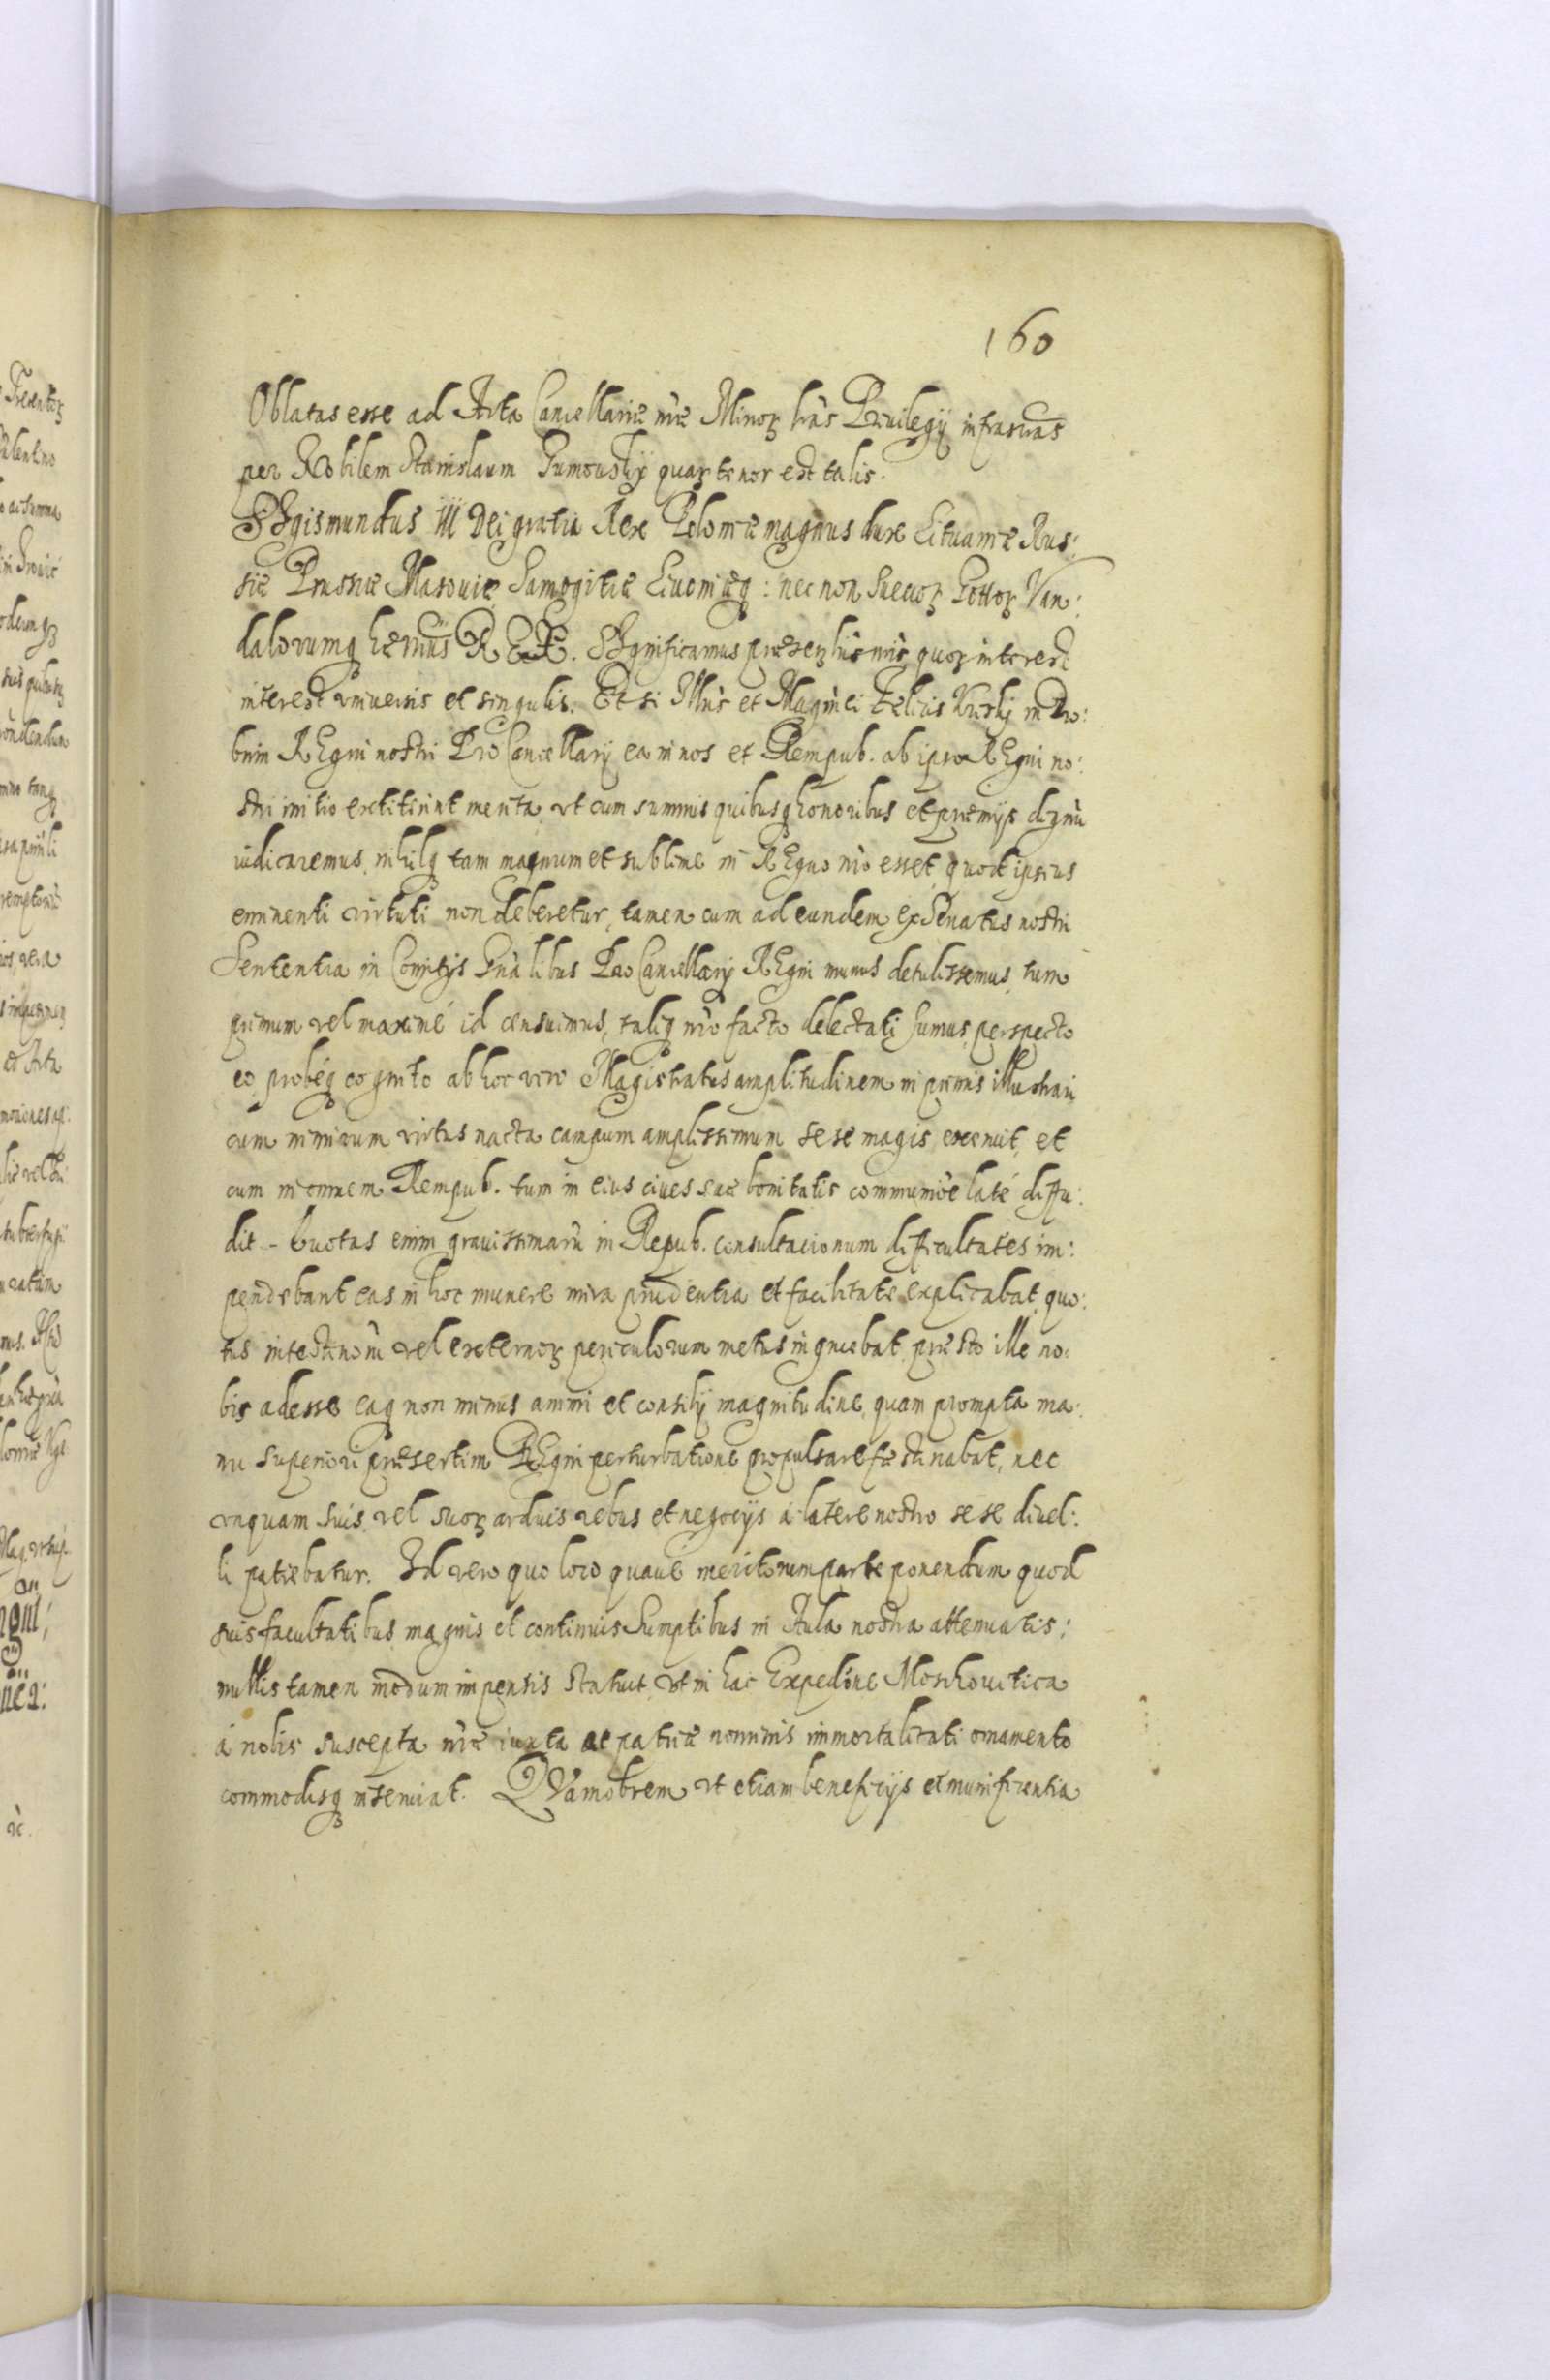 160
Oblatas esse ad Acta Cancellariæ nræ Minoꝝ lras Priuilegij infrascras
per Nobilem Stanislaum Gumowskÿ quaꝝ tenor est talis.
SIgismundus III Dei gratia Rex Poloniæ magnus dux Lituaniæ Rus:
siæ Prussiæ Masouiæ Samogitiæ Liuoniæq: nec non Sueuoꝝ Gottoꝝ Van:
dalorumq hæriûs REX. SIgnificamus præsenꝝ lris nris quoꝝ interest
interest vniuersis et singulis. Et si Illris et Magnci Felicis Kriski in Dro:
bnin REgni nostri ProCancellarij ea in nos et Rempub. ab ipso REgni no:
stri initio extiterint merita, vt eum summis quibusq honoribus et præmijs dignû
iudicaremus, nihilq tam magnum et sublime in REgno nrô esset, quod ipsius
eminenti virtuti non deberetur, tamen cum ad eundem ex Senatus nostri
Sententia in Comitijs Gnâlibus ProCancellarij REgni munus detulissemus, tum
primum vel maximé id censuimus, taliq nrô facto delectati sumus, perspecto
eo probéq cognito ab hoc viro Magistratus amplitudinem in primis illustrari,
cum nimirum virtus nacta campum amplissimum sese magis exeruit, et
cum in omnem Rempub. tum in eius ciues suæ bonitatis communioê laté diffu:
dit - Quotas enim grauissimarû in Repub. consultacionum dificultates im:
pendebant eas in hoc munere mira prudentia et facilitate explicabat, quo:
tus intestinorû vel externoꝝ periculorum metus ingruebat, præsto ille no:
bis adesse eaq non minus animi et consilij magnitudine, quam prompta ma:
nu superiori præsertim REgni perturbatione propulsare festinabat, nec
vnquam suis, vel suoꝝ arduis rebus et negocijs à latere nostro sese diuel:
li patiebatur. Id vero quo loco quaue meritorum parte ponendum quod
suis facultatibus magnis et continuis Sumptibus in Aula nostra attenuatis:
nullis tamen modum impensis statuit, vt in hac Expedône Moschouitica
à nobis suscepta nræ iuxta ac patriæ nominis immortalitati ornamento
commodisq inseruiat. QVamobrem vt etiam beneficijs et munificentia